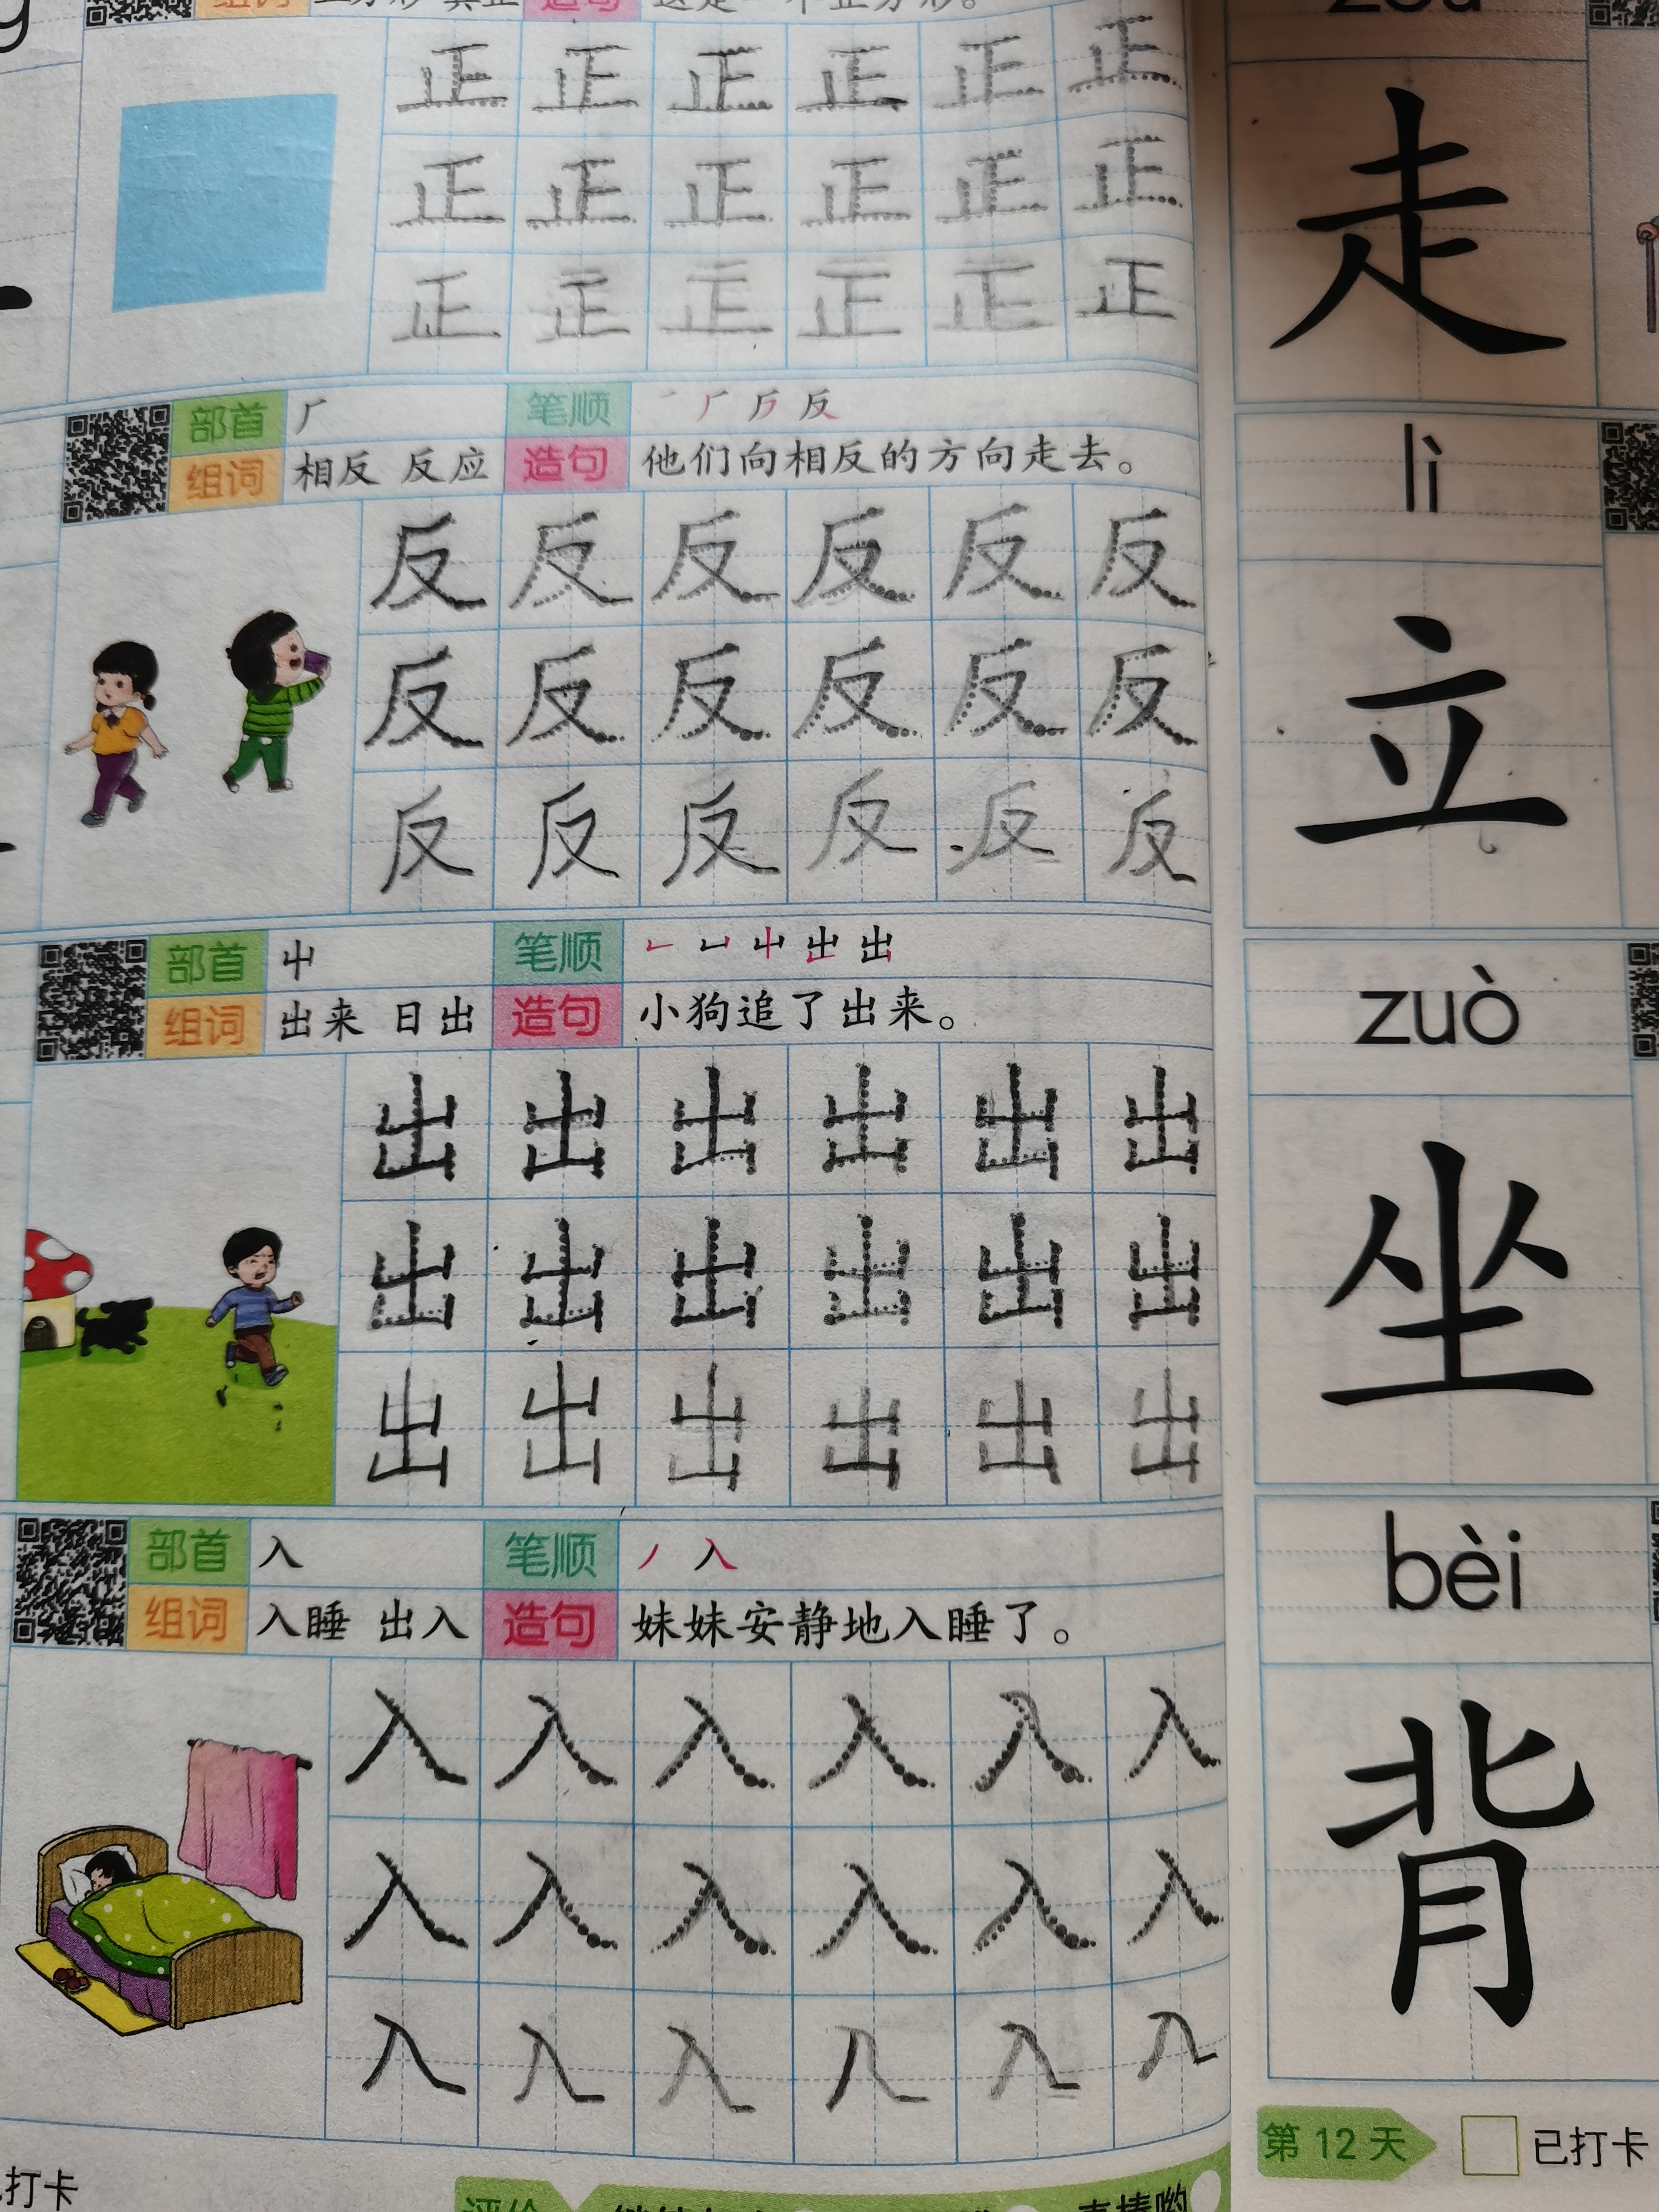 正 正 正 正 正 正
正 正 正 正 正 正
正 正 正 正 正 正
部首 厂 笔顺 丆 厉 反
组词 相反 反应 造句 他们向相反的方向走去。
反 反 反 反 反 反
反 反 反 反 反 反
反 反 反 反 反 反
部首 屮 笔顺 凵 屮 出 出
组词 出来 日出 造句 小狗追了出来。
出 出 出 出 出 出
出 出 出 出 出 出
出 出 出 出 出 出
部首 入 笔顺 丿 入
组词 入睡 出入 造句 妹妹安静地入睡了。
入 入 入 入 入 入
入 入 入 入 入 入
入 入 入 入 入 入
打卡
走
lì
立
zuò
坐
bèi
背
第12天 已打卡